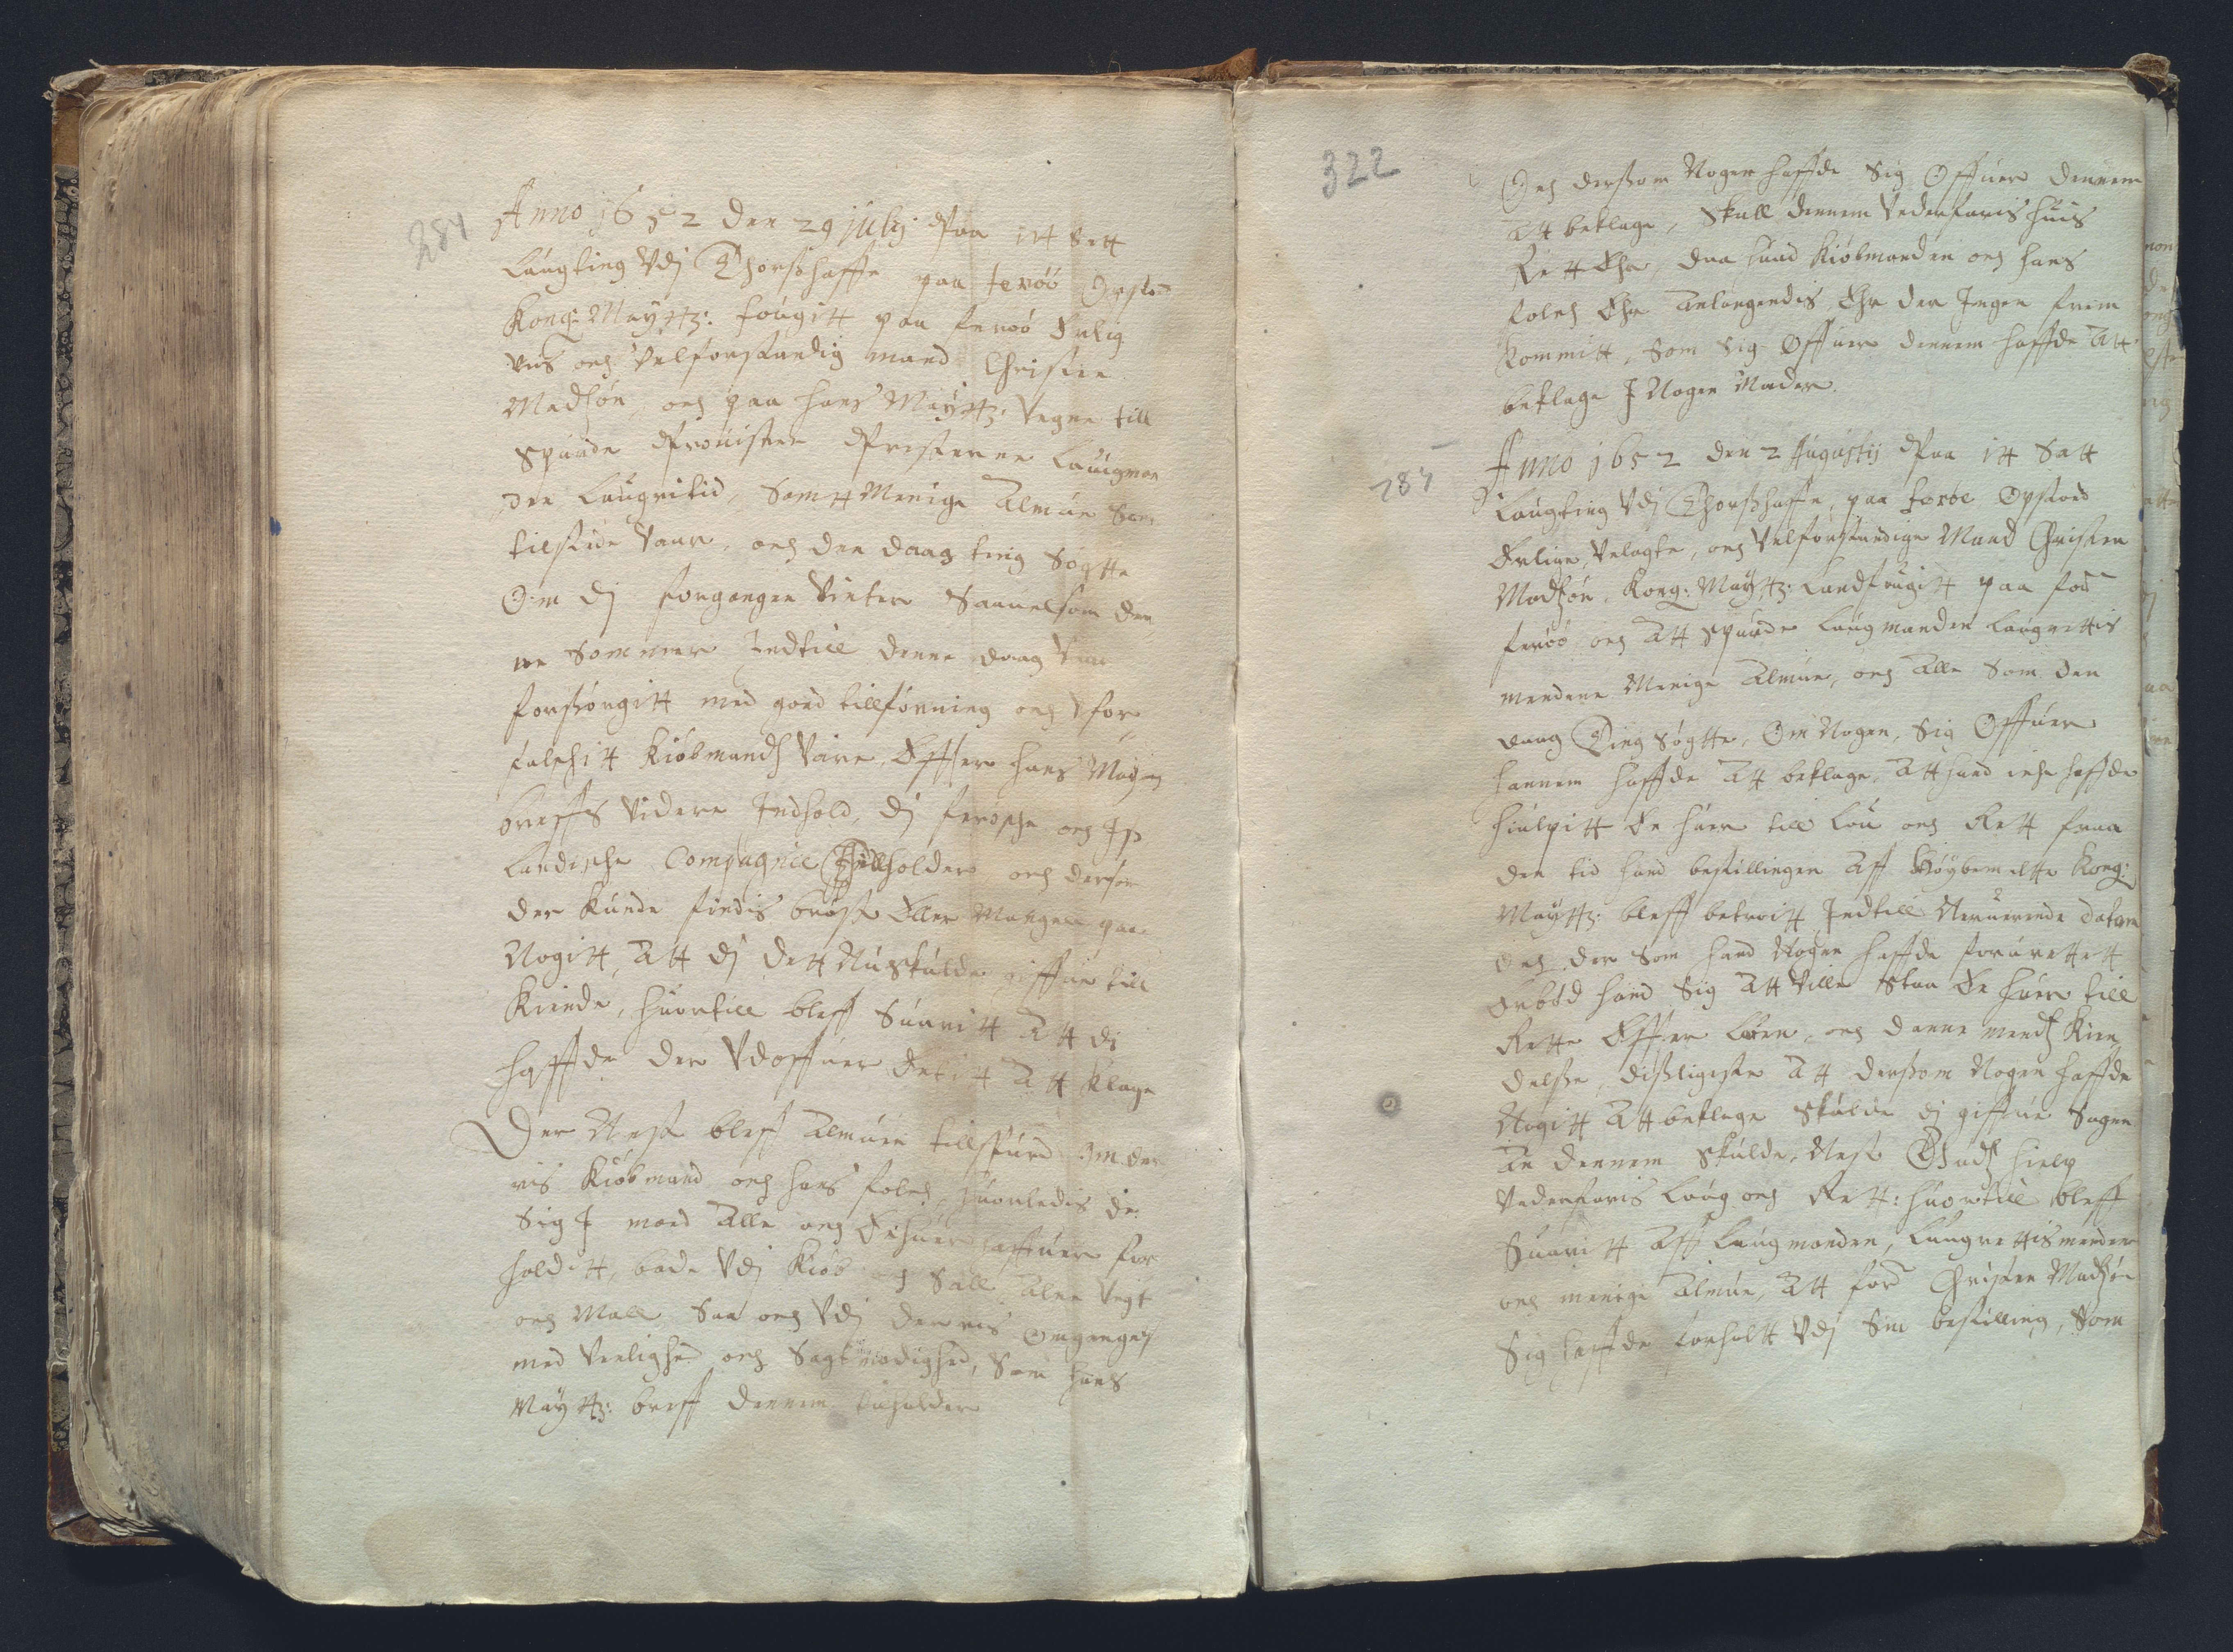 284
Anno 1652 den 29 July Paa itt Sett
Laugting Vdj Thorshaffn paa ferøø Opstod
Kong: Maytz: fougitt paa ferøø Erlig
viis och Velforstandig mand Christen
Madsøn, och paa hans Maytz: Vegne till
spurde Prouisten Presterne Laugman
den Laugritid, Samtt Menige Almue Som
tilstede Vaar, och den daag ting Søgtte
Om dj forgangen Vinter Saauelsom den
ne Sommer Indtill denne daag Vaar
forsørgitt med goed tillførning och Vfor
falschitt Kiøbmands Vare, Effter hans May:
breffs Videre Indhold, dj ferøsche och Iß
landische Compagnie Tillholder och dersom
der kunde findis brøst Eller Mangell paa
Nogitt, Att dj dett Nu skulde giffue till
Kiende, huortill bleff Suaritt Att di
haffde der Vdoffuer Intitt Att klage
Der Nest bleff Almuen tillspurd Om der
ris Kiøbmand och hans folch, huorledis de
Sig I moed Alle och Enhuer haffuer for
holditt, bode Vdj Kiøb och Sall Alen Vegt
och Maal Saa och Vdj derris Omgengelß
med Venlighed och Sagtmodighed, Som hans
Maytz: breff dennem tilholder
322
Och dersom Nogen haffde Sig Offuer dennem
Att beklage, Skall dennem Vederfaris huis
Rett Ehr, Daa huad Kiøbmanden och hans
folch Ehr Anlangendis Ehr der Ingen frem
kommitt, Som Sig Offuer dennem haffde Att
beklage I Nogen Mader.
284
Anno 1652 den 2 Augustij Paa itt Satt
Laugting Vdj Thorshaffn, paa ferøe Opstod
Erlige, Velagte, och Velforstandige Mand Christen
Madsøn, Kong: Maytz: Landfougitt paa for
ferøø och Att spurde Laugmanden Laugrettis
mendene Menige Almue, och Alle Som den
daag Ting Søgtte, Om Nogen, Sig Offuer
hannem haffde Att beklage, Att hand iche haffde
hiulpitt En huer till Lou och Rett fraa
den tid hand bestillingen Aff Høybemeltte Kong:
Maytz: bleff betroitt Indtill Neruerende datum
Och der Som hand Nogen haffde foruretteett
Erbød hand Sig Att Ville Staa En huer till
Rette Effter Loen, och danne mends Kien
delsse, disligeste Att dersom Nogen haffde
Nogitt Att beklage Skulde dj giffue Sagen
An dennem Skulde, Nest Guds hielp
Vederfaris Loug och Rett: huortill bleff
Suaritt Aff Laugmanden, Laugrettismenden
och menige Almue, Att for: Christen Madsøn
Sig haffde forholtt Vdj Sin bestilling, Som